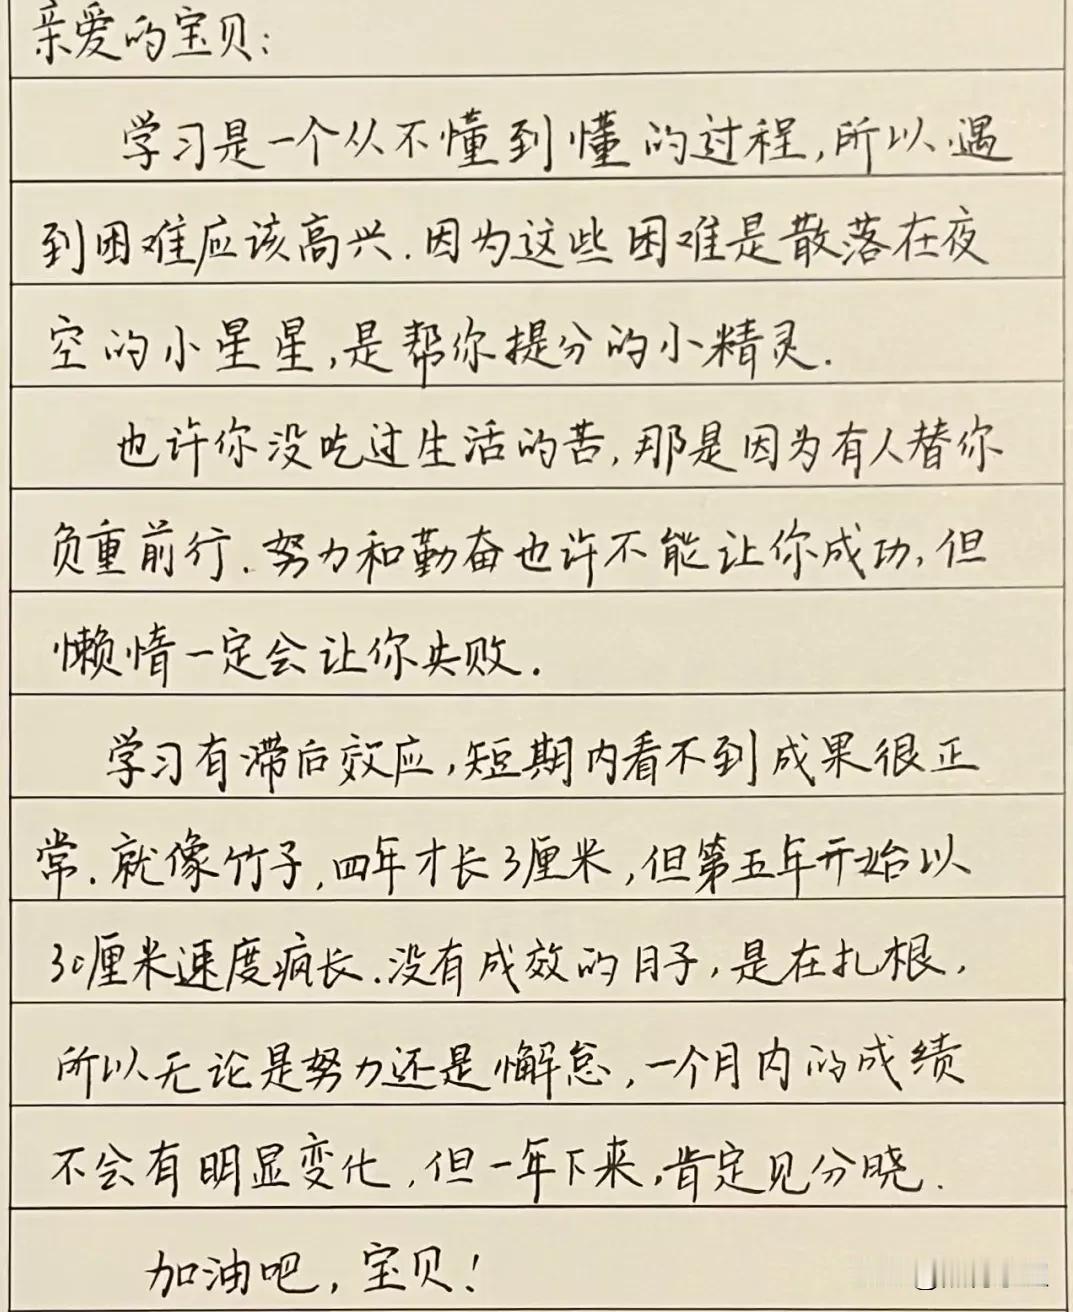 亲爱的宝贝:
学习是一个从不懂到懂的过程,所以遇
到困难应该高兴.因为这些困难是散落在夜
空的小星星,是帮你提分的小精灵.
也许你没吃过生活的苦,那是因为有人替你
负重前行.努力和勤奋也许不能让你成功,但
懒惰一定会让你失败.
学习有滞后效应,短期内看不到成果很正
常.就像竹子,四年才长3厘米,但第五年开始以
30厘米速度疯长.没有成效的日子,是在扎根,
所以无论是努力还是懈怠,一个月内的成绩
不会有明显变化,但一年下来,肯定见分晓.
加油吧,宝贝!